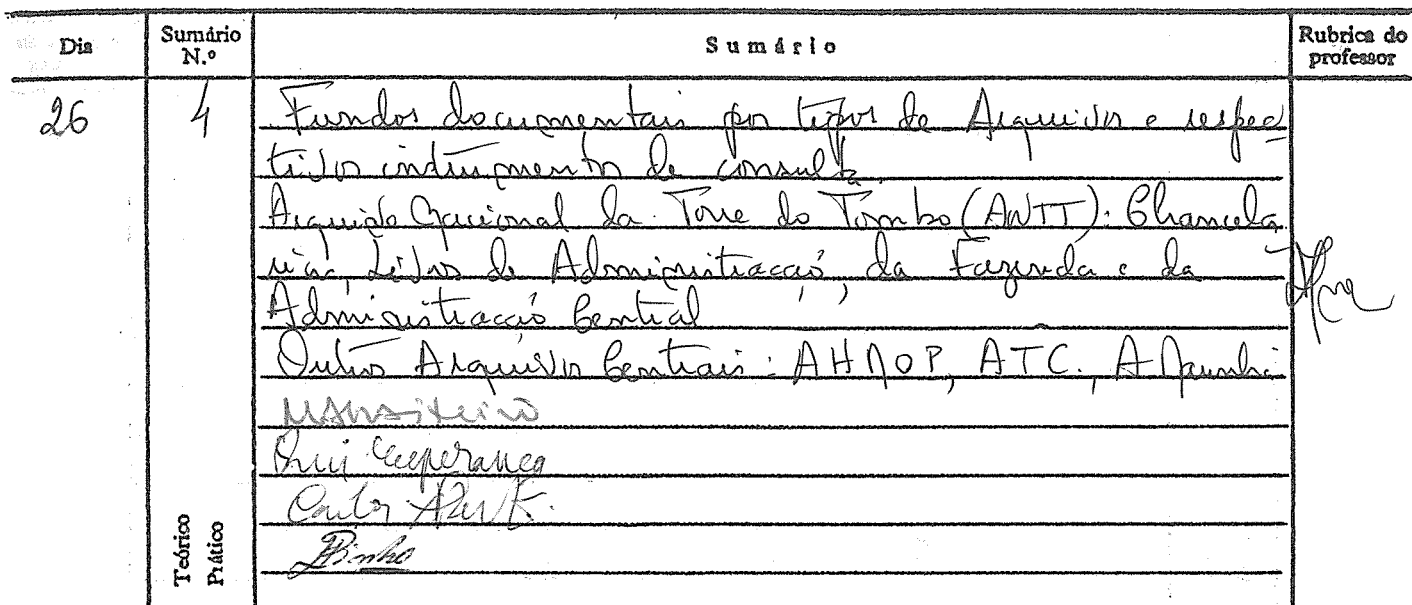 Dia
Sumário N.º
Sumário
Rubrica do professor
26
4
Fundos documentais por tipos de Arquivos e respec
tivos instrumentos de consulta
Arquivo Nacional da Torre do Tombo (ANTT). Chancela
rias, Livros de Administração, da Fazenda e da
Administração Central
Outros Arquivos Centrais: AHMOP, ATC., A Marinha
Rui Esperança
Carlos
Pinho
Teórico
Prático